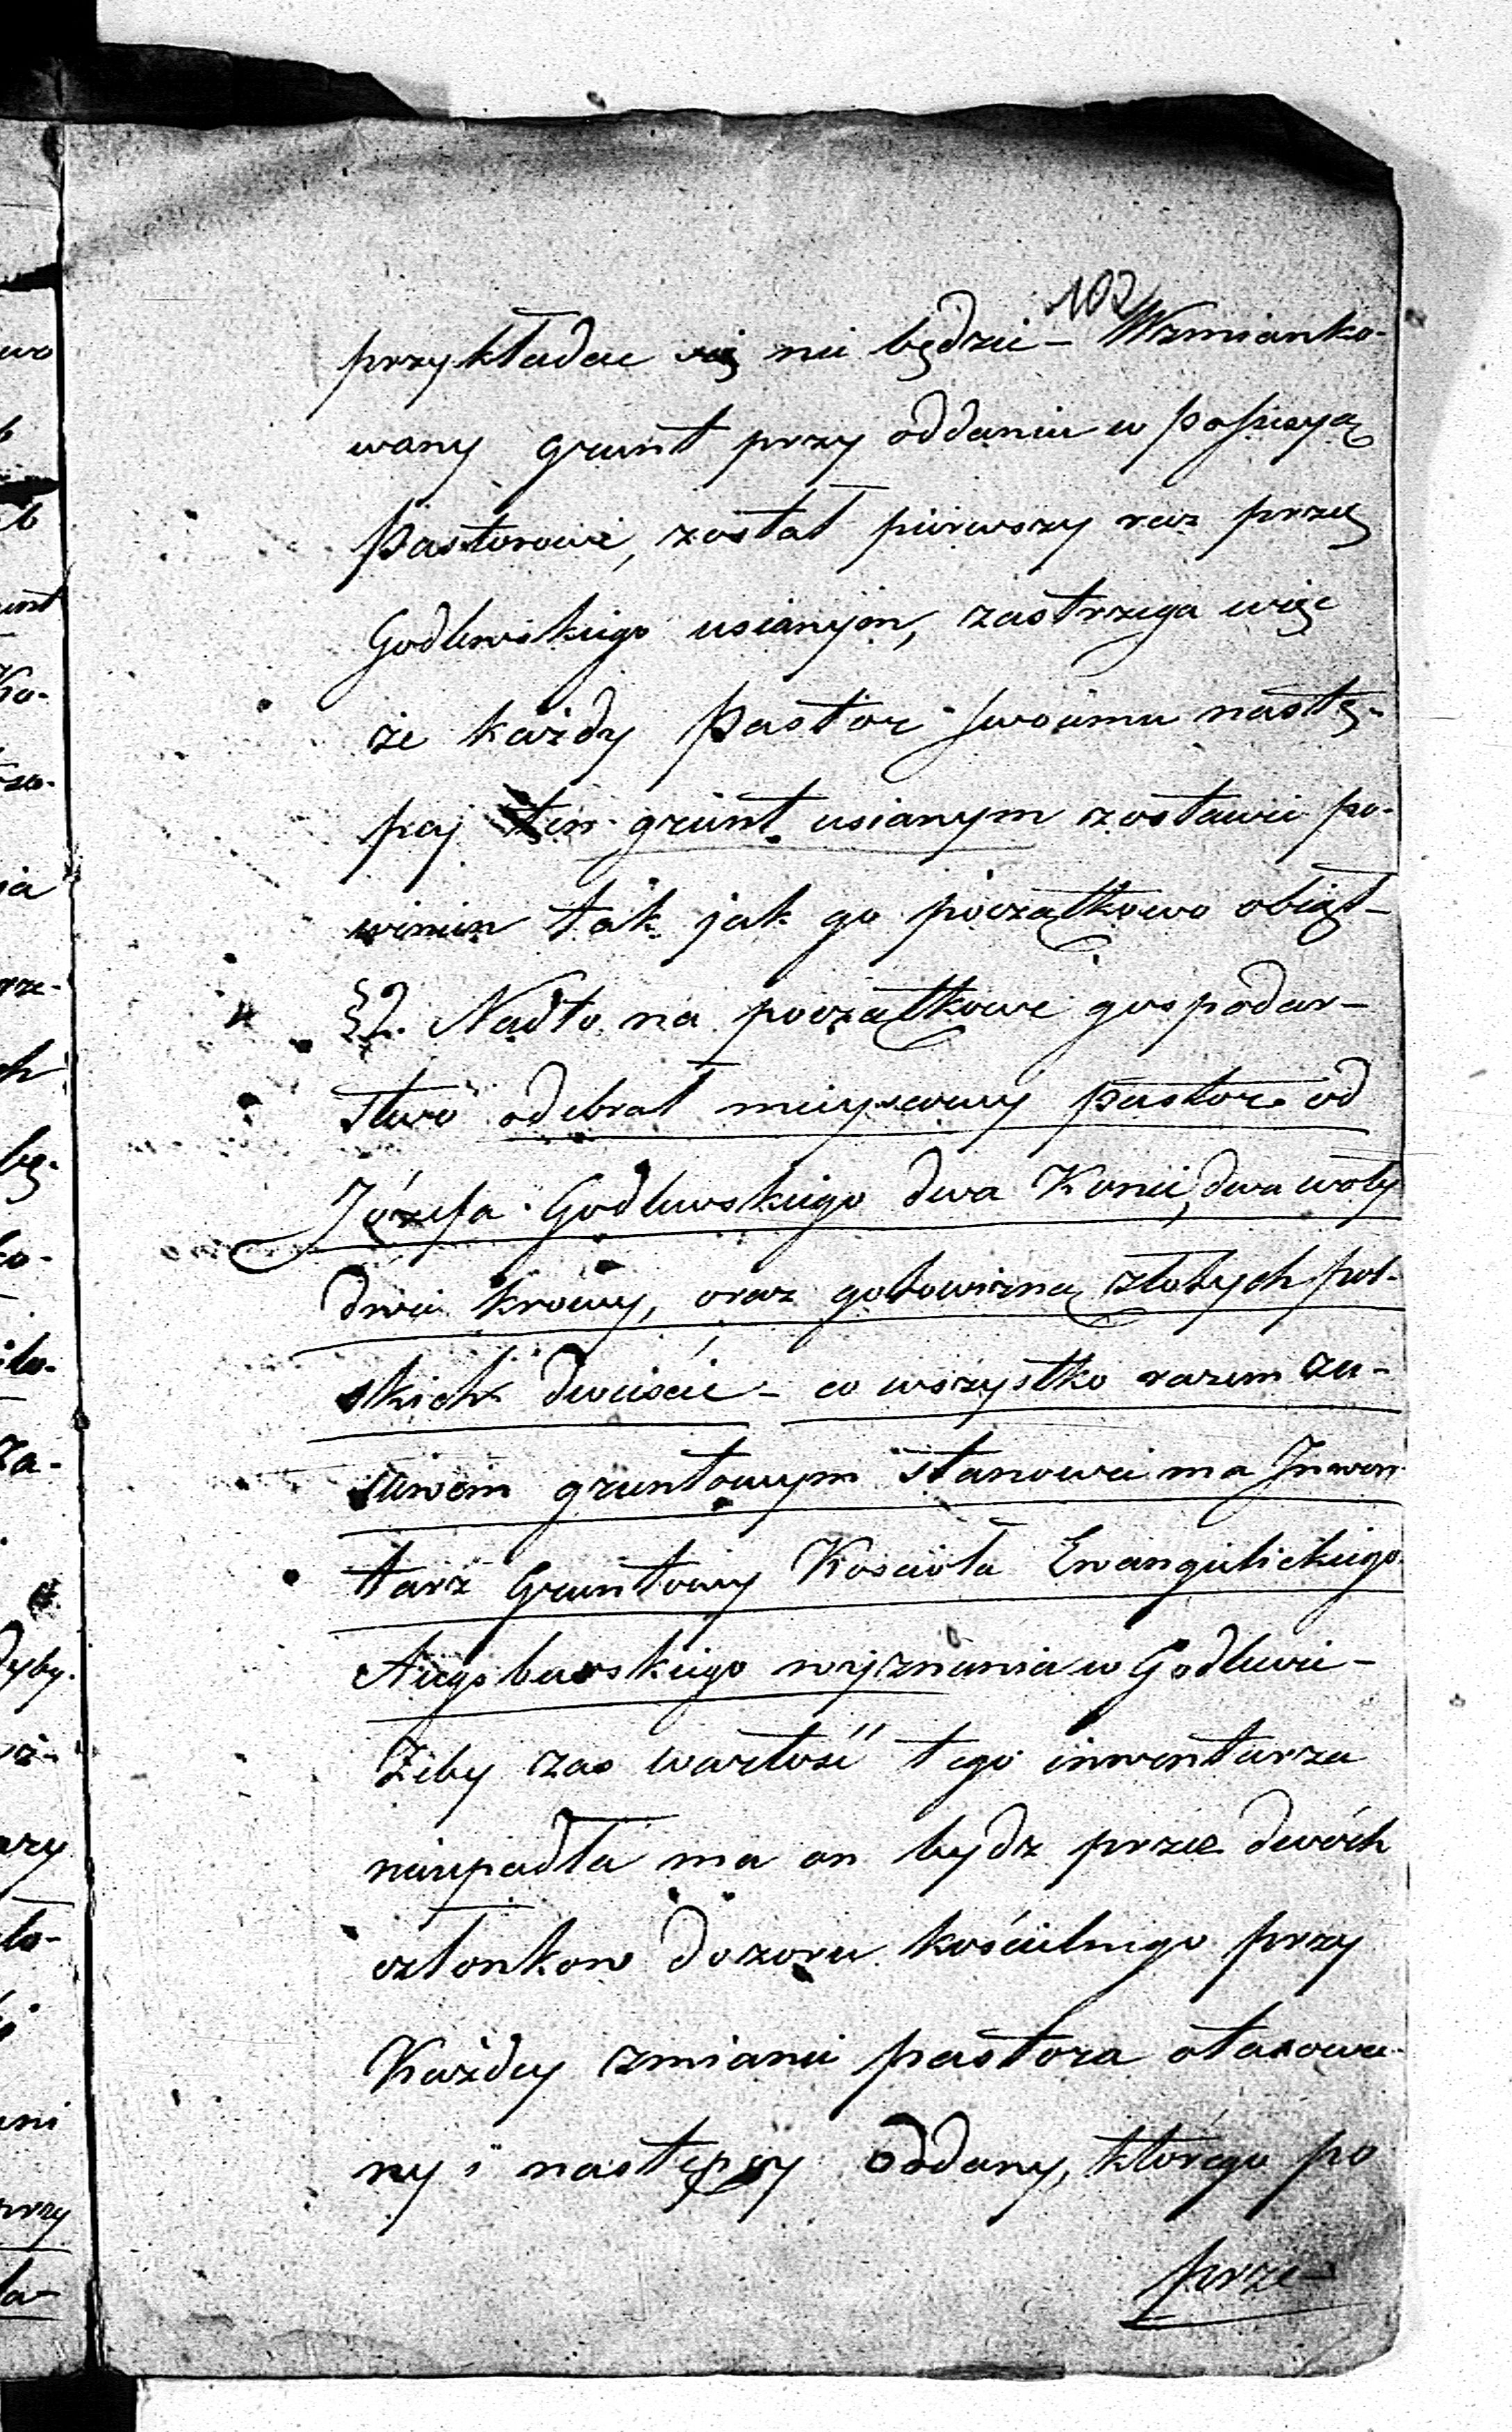 102
przykładać się nie będzie – Wzmianko-
wany grunt przy oddaniu w possesyą
Pastorowi, został pierwszy raz przez
Godlewskiego usianym, zastrzega więc
że każdy Pastor swoiemu nastę-
pcy ten grunt usianym zostawić po-
winien tak jak go początkowo obiął –
§2. Nadto na początkowe gospodar-
stwo odebrał mieyscowy pastor od
Józefa Godlewskiego dwa Konie, dwa woły
dwie krowy, oraz gotowizną złotych pol-
skich dwieście – co wszystko razem za-
siewem gruntowym stanowić ma Inwen-
tarz Gruntowy Kościoła Ewangielickiego
Augsburskiego wyznania w Godlewie –
Żeby zas wartość tego inwentarza
nieupadła ma on bydz przez dwóch
członkow dozoru kościelnego przy
Każdey zmianie pastora otaxowa-
ny i następcy oddany, którego po
prze-